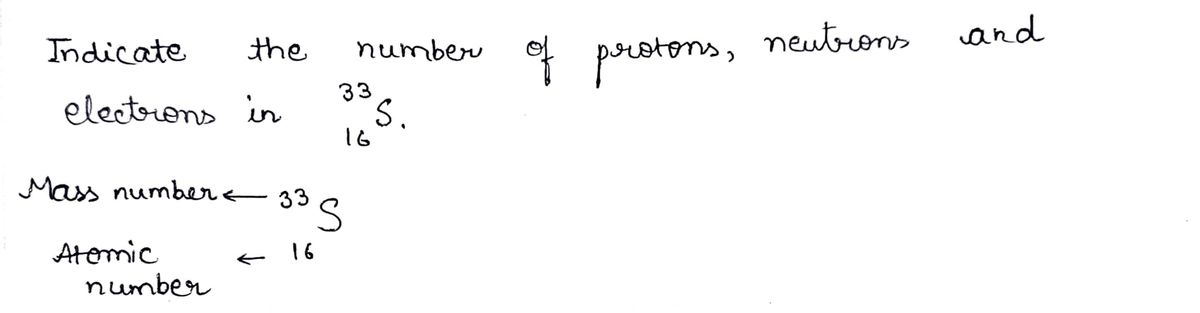 Indicate the number of protons, neutrons and
electrons in ³³₁₆S.
Mass number ← ³³S
Atomic ← 16
number